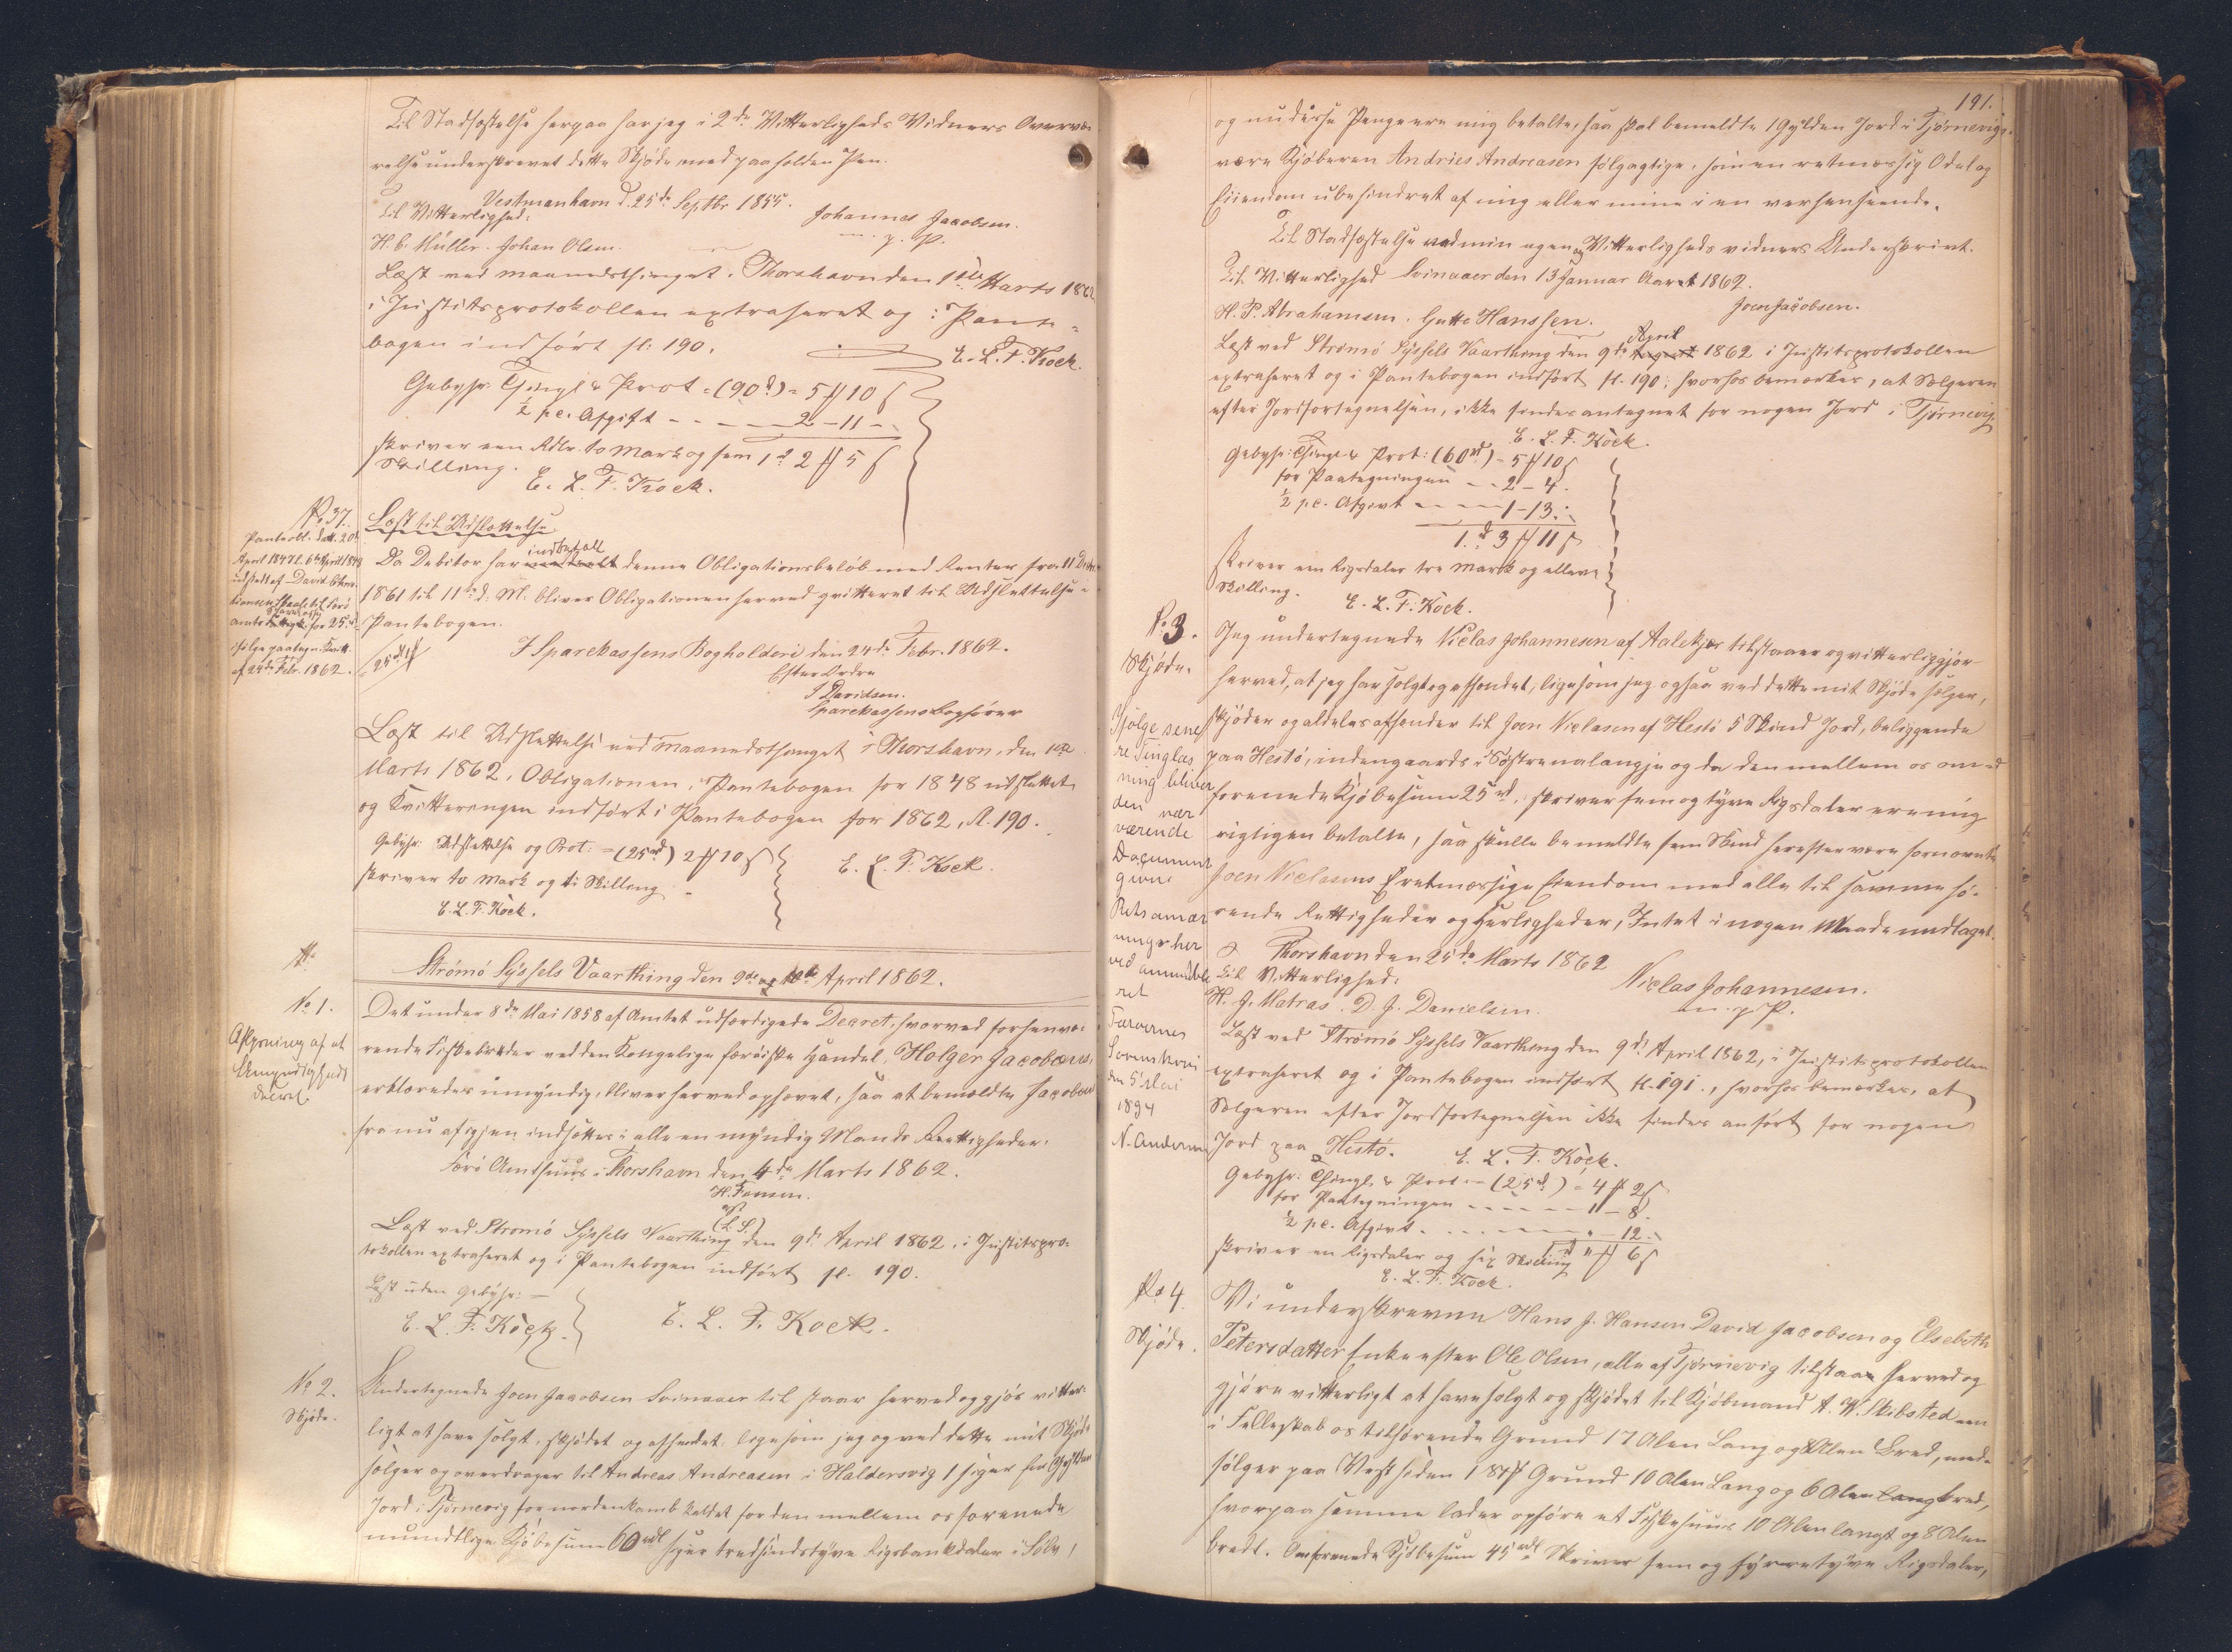 Til Stadfæstelse herpaa har jeg i 2de Vitterligheds Vidners Overvæ-
relse underskrevet dette Skjøde med paaholden Pen.
Vestmanhavn d. 25de Septbr 1855.
Til Vitterlighed:
Johannes Jacobsen.
m. p. P.
H. C. Müller. Johan Olsen.
Læst ved Maanedsthinget i Thorshavn den 1ste Marts 1862
i Justitsprotokollen extraheret og i Pante-
bogen indført fl: 190.
E. L. F. Kock.
Gebyhr: Thingl. & Prot. = (90d) = 5 # 10 ß
½ pc. Afgift - - - - 2 - 11 -
1d 2 # 5 ß
skriver een Rdlr. to Mark og fem
Skilling.
E. L. F. Kock.
No 37.
Panteobl. dat. 20de
April 1847 l. 6te April 1848
udstedt af David Chri-
stiansen Skaale til Færø
Amts Sparekasse for 25rd
ifølge paategn. Kvitt.
af 24de Febr. 1862.
Læst til Udslettelse
Da Debitor har indbetalt denne Obligationsbeløb med Renter fra 11 Decbr.
1861 til 11te d. M. bliver Obligationen herved qvitteret til Udslettelse i
Pantebogen.
25rd
I Sparekassens Bogholderi den 24de Febr. 1862.
Efter Ordre
J Davidsen.
Sparekassens Bogfører
Læst til Udslettelse ved Maanedsthinget i Thorshavn, den 1ste
Marts 1862, Obligationen i Pantebogen for 1848 udslettet
og Kvitteringen indført i Pantebogen for 1862, fl. 190.
Gebyhr: Udslettelse og Prot: = (25rd) 2 # 10 ß
skriver to Mark og ti Skilling
E. L. F. Kock.
E. L. F. Kock.
Strømø Syssels Vaarthing den 9de og 10de April 1862.
No 1.
Afløsning af et
Umyndigheds
Decret.
Det under 8de Mai 1858 af Amtet udfærdigede Decret, hvorved forhenvæ-
rende Fiskebrøder ved den Kongelige færøiske Handel, Holger Jacobæus,
erklæredes umyndig, bliver herved ophævet, saa at bemeldte Jacobæus
fra nu af igjen indsættes i alle en myndig Mands Rettigheder.
Færø Amtshuus i Thorshavn den 4de Marts 1862.
H. Jensen.
(L. S.)
Læst ved Strømø Syssels Vaarthing den 9de April 1862, i Justitspro-
tokollen extraheret og i Pantebogen indført fl. 190.
Læst uden Gebyhr: -
E. L. F. Kock.
E. L. F. Kock.
No 2.
Skjøde.
Undertegnede Joen Jacobsen Svinaaer tilstaar herved og gjør vitter-
ligt at have solgt, skjødet og afhændet, ligesom jeg og ved dette mit Skjøde
sælger og overdrager til Andreas Andreasen i Haldersvig 1 siger en Gylden
Jord i Tjørnevig for nordenkamb kaldet for den mellem os forenede
mundtlige Kjøbesum 60rdl siger tredsindstyve Rigsbankdaler i Sølv,
191.
og nu disse Penge ere mig betalte, saa skal bemeldte 1 Gylden Jord i Tjørnevig
være Kjøberen Andries Andreasen følgagtige, som en retmæssig Odel og
Eiendom ubehindret af mig eller mine i en verhenseende.
Til Stadfæstelse ved min egen og Vitterligheds vidners Underskrivt.
Til Vitterlighed Svinaaer den 13 Januar Aaret 1862.
Joen Jacobsen.
H. P. Abrahamsen. Gutte Hanssen.
Læst ved Strømø Syssels Vaarthing den 9de April 1862 i Justitsprotokollen
extraheret og i Pantebogen indført fl. 190; hvorhos bemærkes, at Sælgeren
efter Jordfortegnelsen, ikke findes antegnet for nogen Jord i Tjørnevig
E. L. F. Kock.
Gebyhr: Thingl. & Prot: (60rd) - 5 # 10 ß
for Paategningen - - 2 - 4.
½ pc. Afgivt - - - 1 - 13.
1.d 3 # 11 ß
skriver een Rigsdaler tre Mark og elleve
Skilling.
E. L. F. Kock.
No 3.
Skjøde.
Jeg undertegnede Nielas Johannesen af Aalekjær tilstaaer og vitterliggjør
herved, at jeg har solgt og afhændet, ligesom jeg ogsaa ved dette mit Skjøde sælger,
skjøder og aldeles afhænder til Joen Nielasen af Hestø 5 Skind Jord, beliggende
paa Hestø, indengaards i Sýstrenalangju og da den mellem os om-
forenede Kjøbesum 25rd, skriver fem og tyve Rigsdaler ere mig
rigtigen betalte, saa skulle bemeldte fem Skind herefter være fornævnte
Joen Nielasens retmæssige Eiendom med alle til samme hø-
rende Rettigheder og Herligheder, Intet i nogen Maade undtaget.
Thorshavn den 25de Marts 1862
Til Vitterlighed:
Nielas Johannesen.
m. p. P.
H. J. Matras. D. J. Danielsen.
Læst ved Strømø Syssels Vaarthing den 9de April 1862, i Justitsprotokollen
extraheret og i Pantebogen indført fl. 191., hvorhos bemærkes, at
Sælgeren efter Jordfortegnelsen ikke findes anført for nogen
Jord paa Hestø.
E. L. F. Kock.
Ifølge sene
re Tinglæs
ning bliver
den nær
værende
Document
givne
Retsanmær
ninger her
ved annulle
ret
Færøernes
Sorenskriveri
den 5 Mai
1894
N. Andersen
Gebyhr: Thingl. & Prot = (25rd) = 4 # 2 ß
for Paategningen - - - - 1 - 8.
½ pc. Afgivt - - - - " - 12.
1d " # 6 ß
skriver en Rigsdaler og sex Skilling
E. L. F. Kock.
No 4.
Skjøde.
Vi underskrevne Hans J. Hansen David Jacobsen og Elsebeth
Petersdatter Enke efter Ole Olsen, alle af Tjørnevig tilstaae herved og
gjøre vitterligt at have solgt og skjødet til Kjøbmand A. W. Skibsted een
i Fælleskab os tilhørende Grund 17 Alen Lang og 8 Alen Bred, med-
følger paa Vestsiden 1 St. Grund 10 Alen Lang og 6 Alen bred,
hvorpaa samme lader opføre et Fiskehuus 10 Alen langt og 8 Alen
bredt. Omforenede Kjøbesum 45rdl Skriver fem og fyrretyve Rigsdaler,